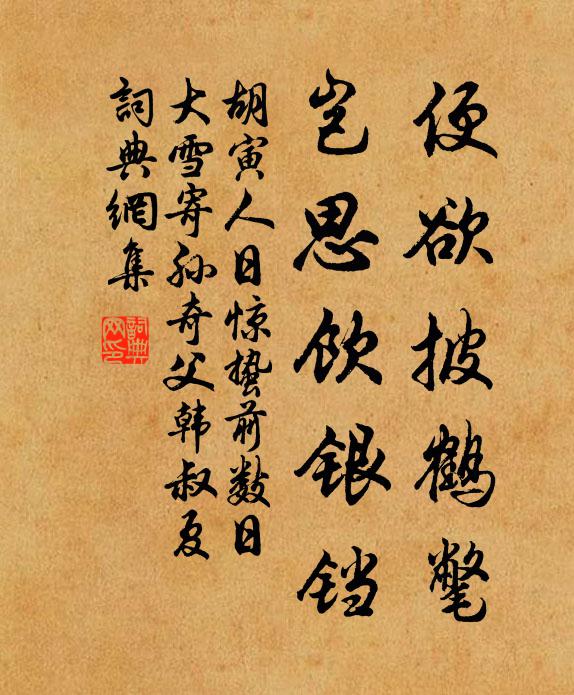 便欲披鹤氅
岂思饮银铛
胡寅人日惊蛰前数日
大雪寄孙奇父韩叔夏
詞典網集
詞典
网印